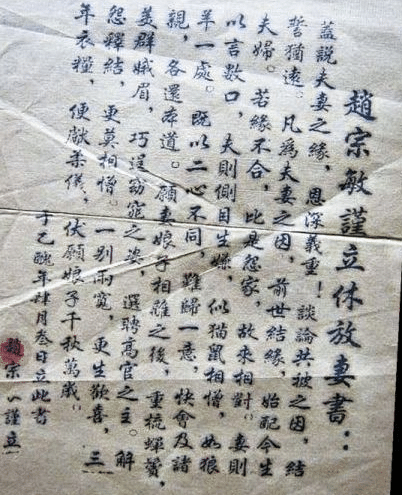 趙宗敏謹立休放妻書：
蓋說夫妻之緣，恩深義重！談論共被之因，結
誓猶遠。凡為夫妻之因，前世結緣，始配今生
夫婦。若緣不合，比是怨家，故來相對。妻則
以言數口，夫則側目生嫌，似猫鼠相憎，如狼
羊一處。既以二心不同，難歸一意，快會及諸
親，各還本道。願妻娘子相離之後，重梳蟬鬢，
美群娥眉，巧逞窈窕之姿，選聘高官之主。解
怨釋結，更莫相憎。一別兩寬，更生歡喜，三
年衣糧，便獻柔儀，伏願娘子千秋萬歲！
于乙醜年肆月叁日立此書
趙宗謹立